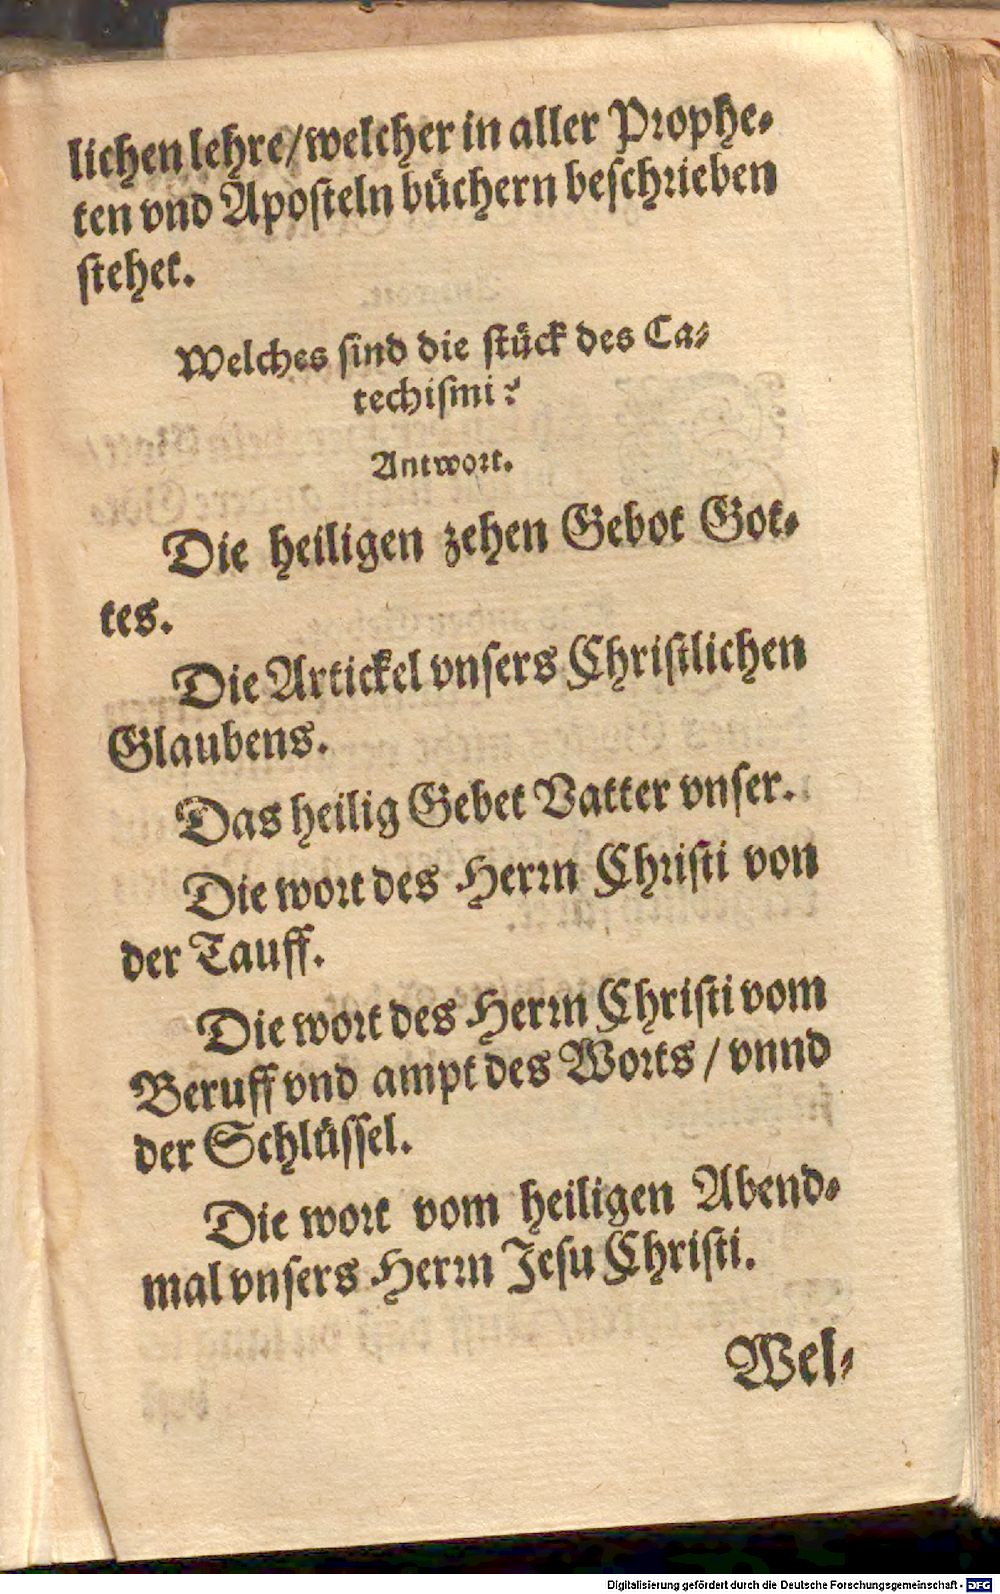 lichen lehre/welcher in aller Prophe⸗
ten vnd Aposteln büchern beschrieben
stehet.
Welches sind die stück des Ca⸗
techismi?
Antwort.
Die heiligen zehen Gebot Got⸗
tes.
Die Artickel vnsers Christlichen
Glaubens.
Das heilig Gebet Vatter vnser.
Die wort des Herrn Christi von
der Tauff.
Die wort des Herrn Christi vom
Beruff vnd ampt des Worts / vnnd
der Schlüssel.
Die wort vom heiligen Abend⸗
mal vnsers Herrn Jesu Christi.
Wel⸗
Digitalisierung gefördert durch die Deutsche Forschungsgemeinschaft - DFG